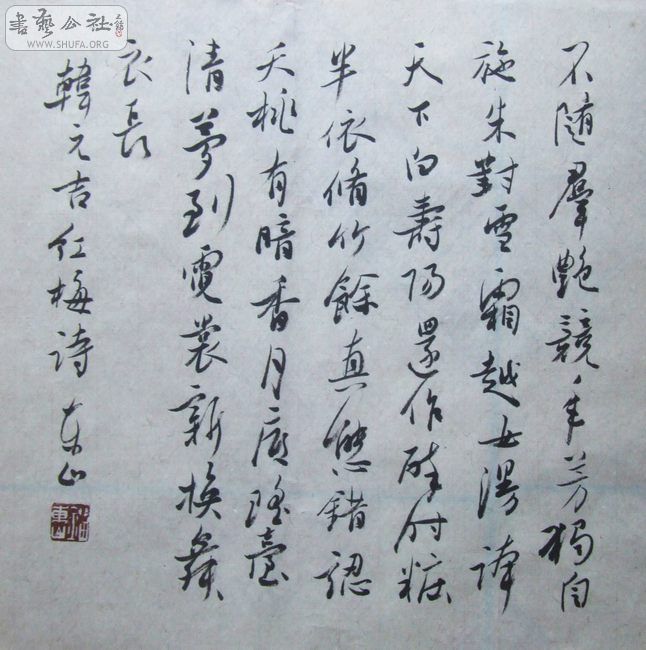 書藝公社
WWW.SHUFA.ORG
不隨羣艷競年芳獨自
施朱對雪霜越女漫誇
天下白壽陽還作醉時粧
半依脩竹餘真態錯認
夭桃有暗香月底瑤臺
清夢到霓裳新換舞
衣長
韓元吉紅梅詩 東山